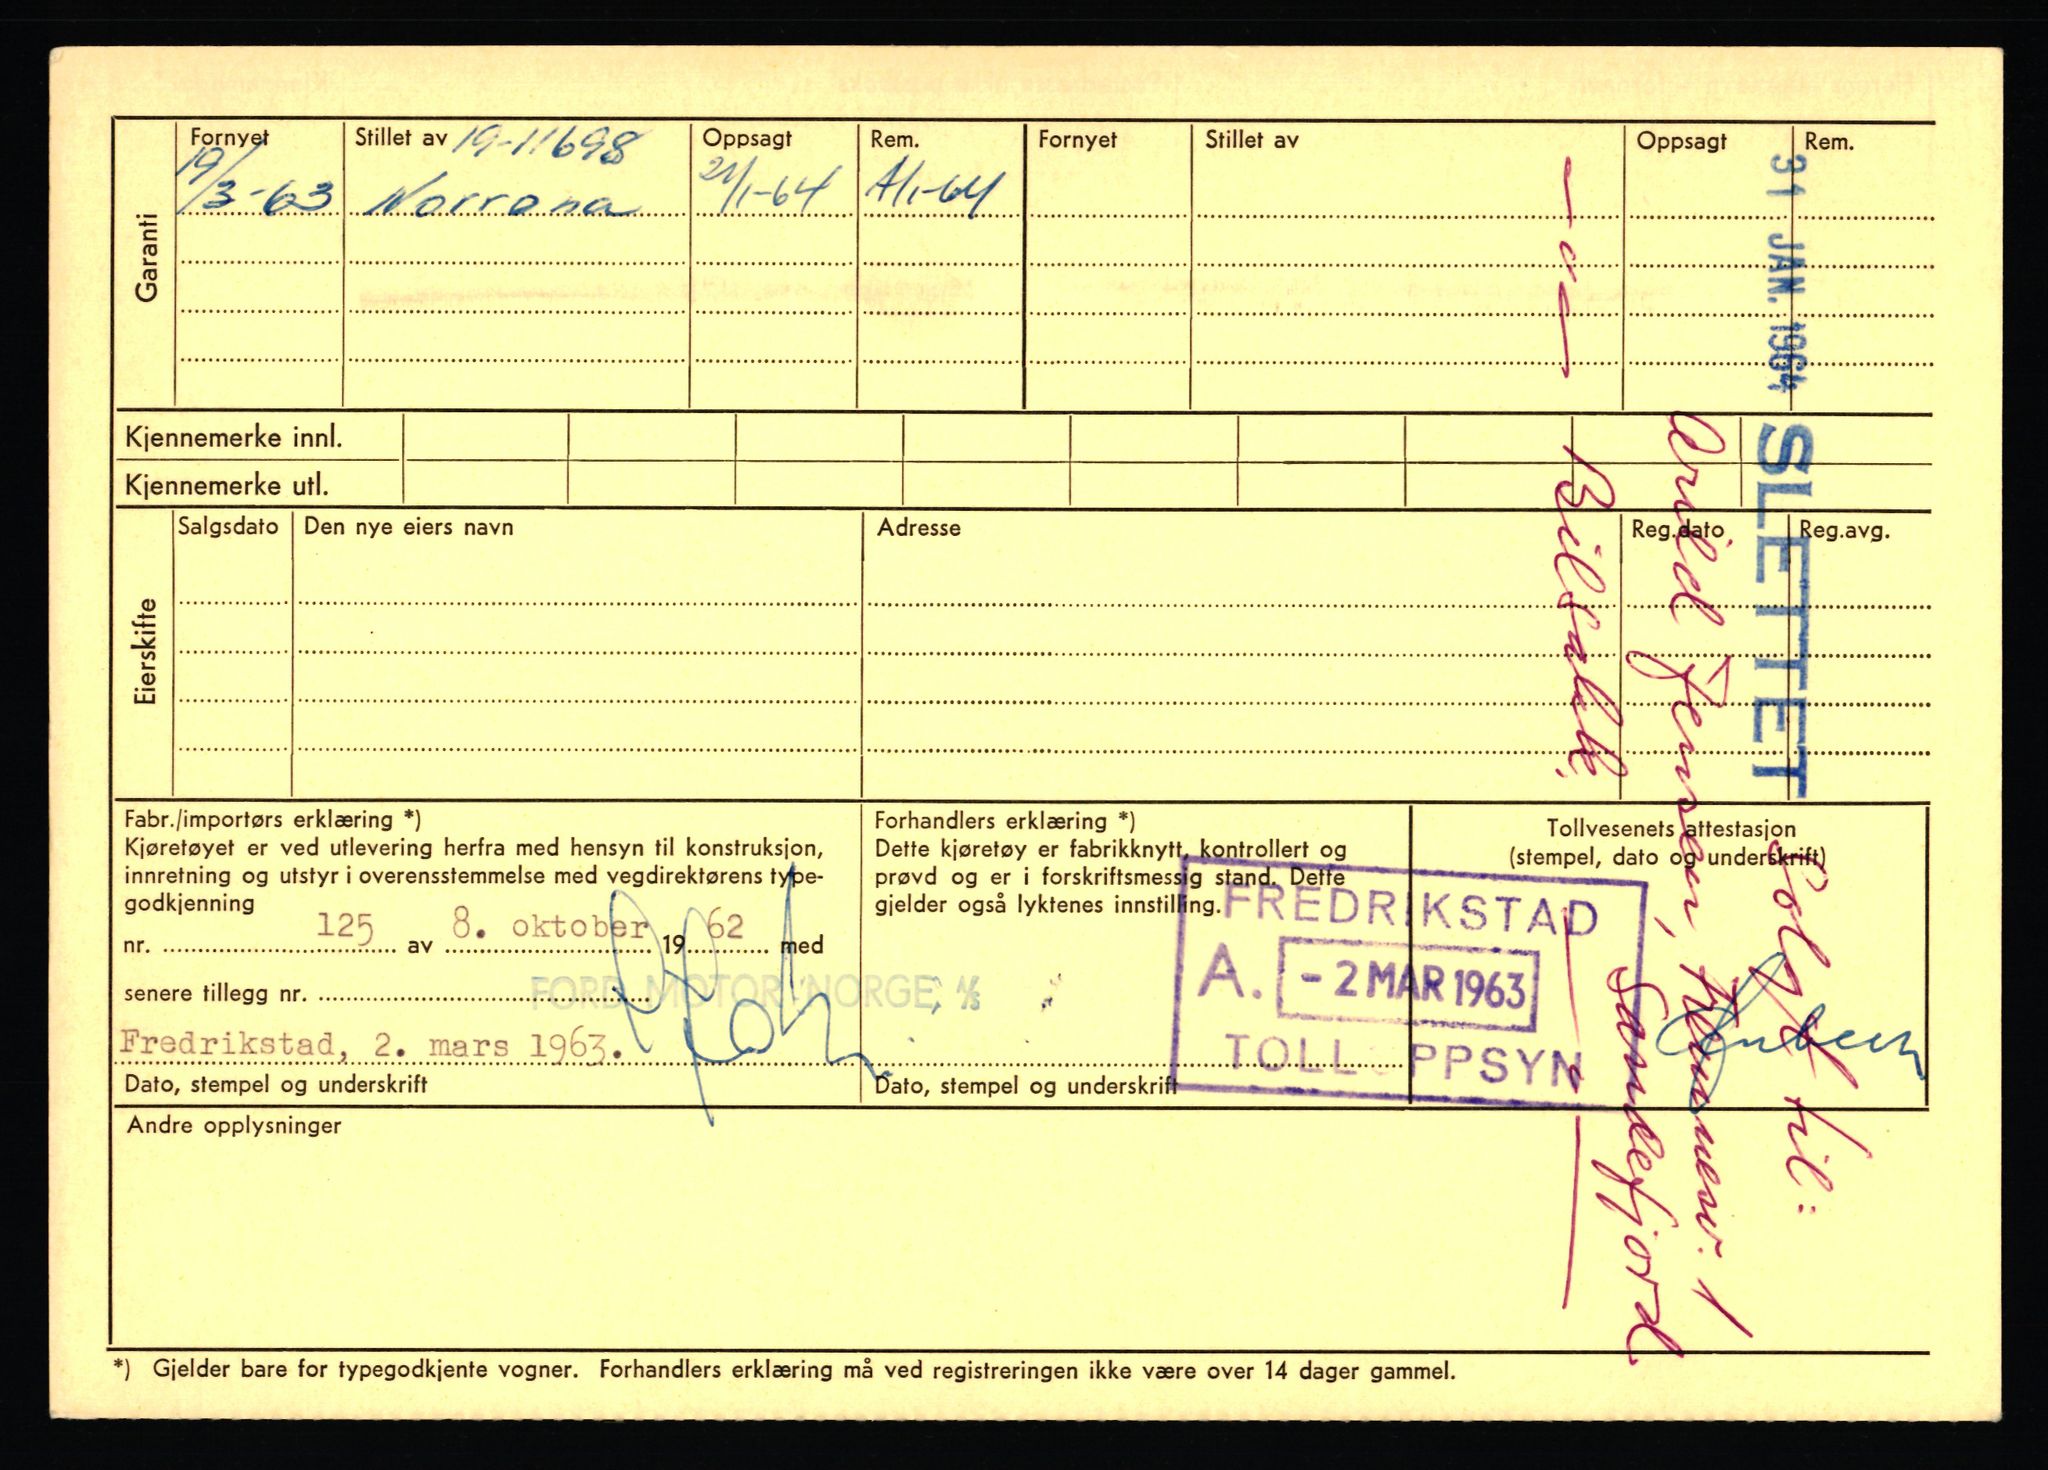 Garanti
Fornyet Stillet av 19-11698 Oppsagt Rem. Fornyet Stillet av Oppsagt Rem.
19/3-63 Norrøna 21/1-64 A/1-64
Kjennemerke innl.
Kjennemerke utl.
Eierskifte
Salgsdato Den nye eiers navn Adresse Reg.dato Reg.avg.
31 JAN. 1964 SLETTET
Solgt til:
Arvild Jensen,
Sandefjord
Bilsakk.
Fabr./importørs erklæring *)
Kjøretøyet er ved utlevering herfra med hensyn til konstruksjon,
innretning og utstyr i overensstemmelse med vegdirektørens type-
godkjenning
nr. 125 av 8. oktober 1962 med
senere tillegg nr.
FORD MOTOR NORGE, A/S
Fredrikstad, 2. mars 1963.
Dato, stempel og underskrift
Forhandlers erklæring *)
Dette kjøretøy er fabrikknytt, kontrollert og
prøvd og er i forskriftsmessig stand. Dette
gjelder også lyktenes innstilling.
Dato, stempel og underskrift
Tollvesenets attestasjon
(stempel, dato og underskrift)
FREDRIKSTAD
A. - 2 MAR 1963
TOLLOPPSYN
Andre opplysninger
*) Gjelder bare for typegodkjente vogner. Forhandlers erklæring må ved registreringen ikke være over 14 dager gammel.